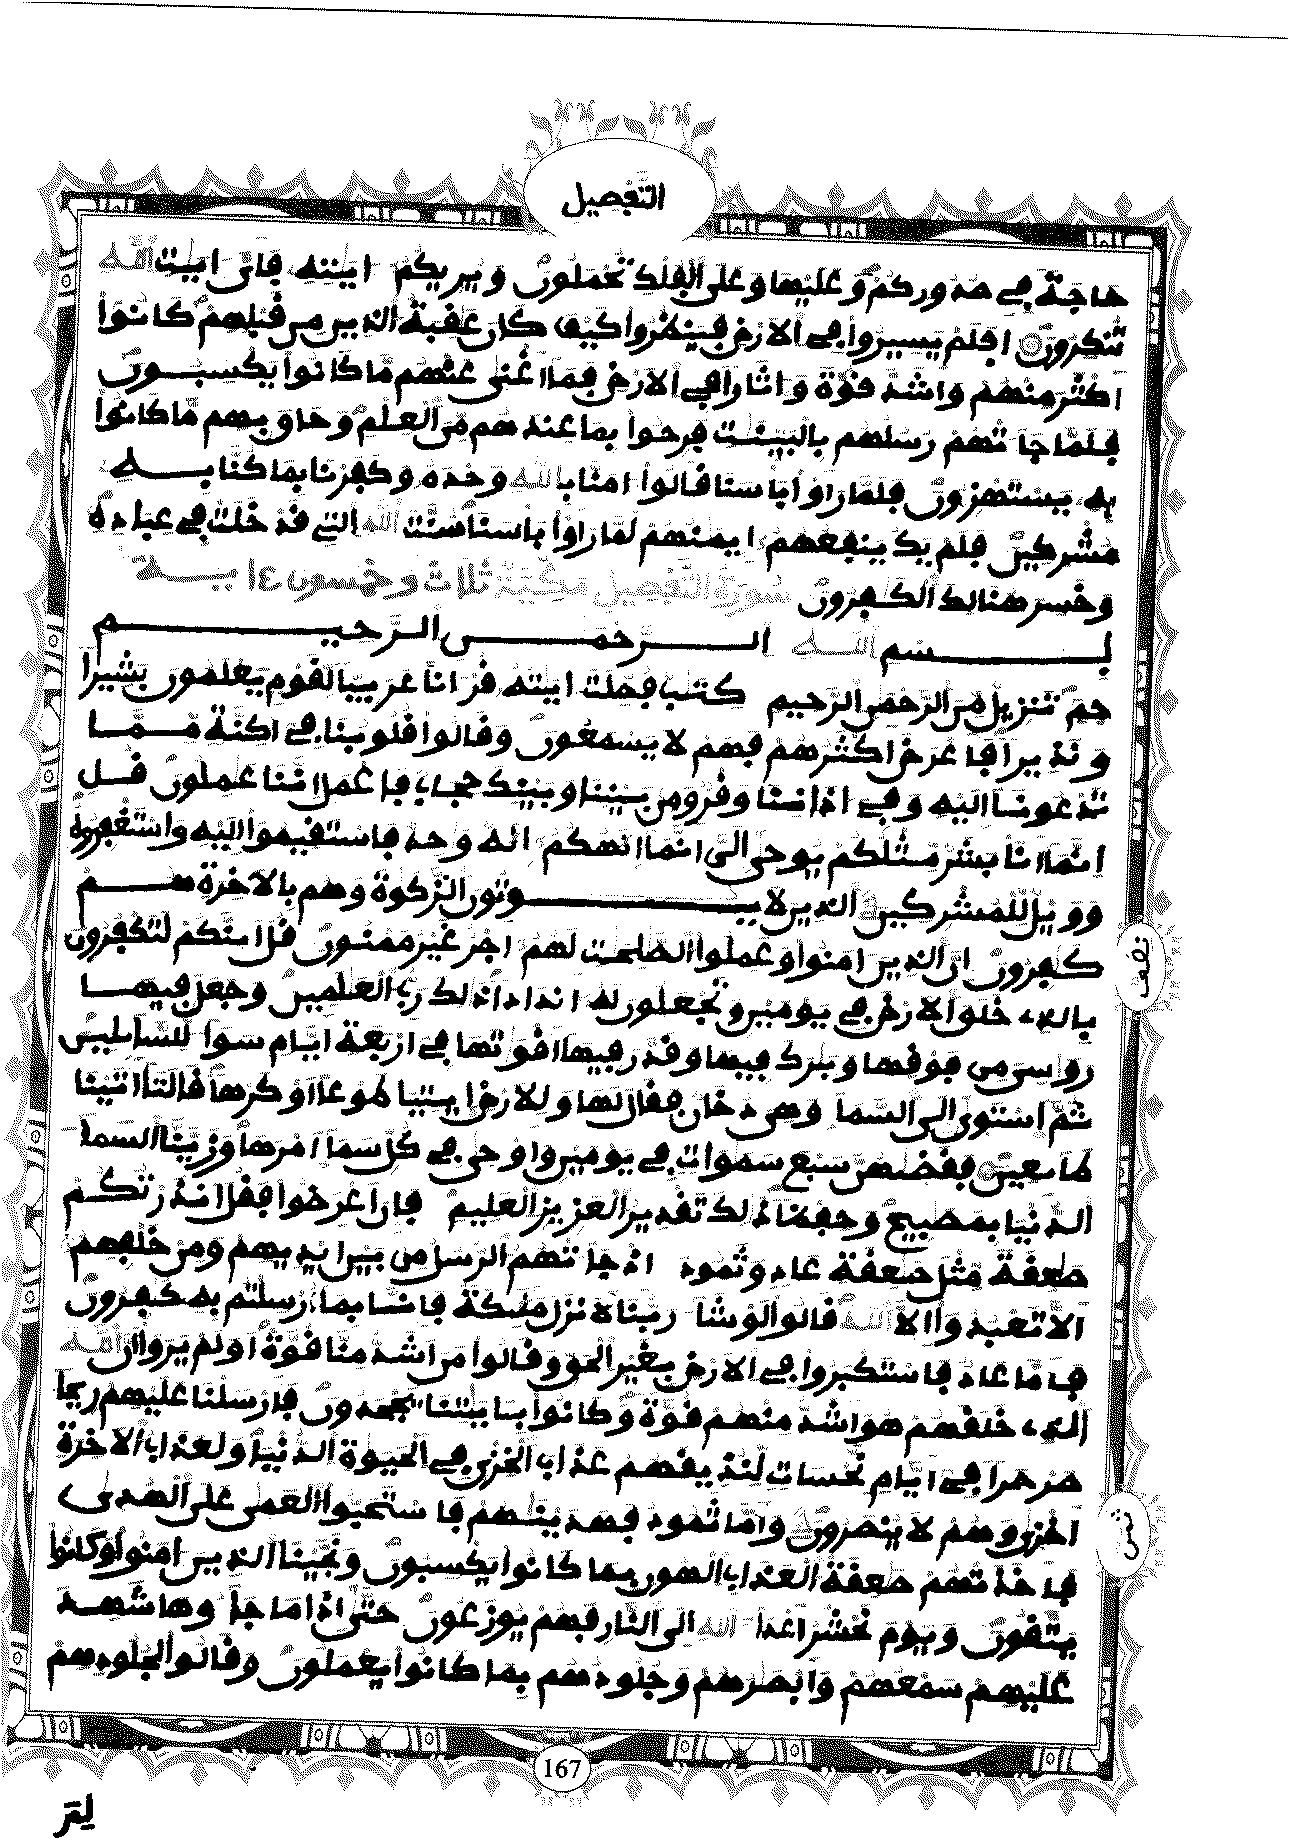 التفصيل
حاجة في صدوركم وعليها وعلى الفلك تحملون ويريكم ايته فاى ايت الله
تنكرون افلم يسيروا في الارض فينظروا كيف كان عقبة الذين من قبلهم كانوا
اكثر منهم واشد قوة واثارا في الارض فما اغنى عنهم ما كانوا يكسبون
فلما جاتهم رسلهم بالبينت فرحوا بما عندهم من العلم وحاق بهم ما كانوا
به يستهزون فلما راوا باسنا قالوا امنا بالله وحده وكفرنا بما كنا به
مشركين فلم يك ينفعهم ايمنهم لما راوا باسنا سنت الله التي قد خلت في عباده
وخسر هنالك الكفرون سورة التفصيل مكية ثلاث وخمسون اية
بسم الله الرحمن الرحيم
حم تنزيل من الرحمن الرحيم كتب فصلت ايته قرانا عربيا لقوم يعلمون بشيرا
ونذيرا فاعرض اكثرهم فهم لا يسمعون وقالوا قلوبنا في اكنة مما
تدعونا اليه وفي اذاننا وقر ومن بيننا وبينك حجاب فاعمل اننا عملون قل
انما انا بشر مثلكم يوحى الى انما الهكم اله وحد فاستقيموا اليه واستغفروه
وويل للمشركين الذين لا يوتون الزكوة وهم بالاخرة هم
كفرون ان الذين امنوا وعملوا الصلحت لهم اجر غير ممنون قل اينكم لتكفرون
بالذي خلق الارض في يومين وتجعلون له اندادا ذلك رب العلمين وجعل فيها
روسى من فوقها وبرك فيها وقدر فيها اقوتها في اربعة ايام سوا للسايلين
ثم استوى الى السما وهى دخان فقال لها وللارض ايتيا طوعا او كرها قالتا اتينا
طايعين فقضهن سبع سموات في يومين واوحى في كل سما امرها وزينا السما
الدنيا بمصبيح وحفظا ذلك تقدير العزيز العليم فان اعرضوا فقل انذرتكم
صعقة مثل صعقة عاد وثمود اذ جاتهم الرسل من بين ايديهم ومن خلفهم
الا تعبدوا الا الله قالوا لو شا ربنا لانزل مليكة فانا بما ارسلتم به كفرون
فاما عاد فاستكبروا في الارض بغير الحق وقالوا من اشد منا قوة اولم يروا ان الله
الذي خلقهم هو اشد منهم قوة وكانوا بايتنا يجحدون فارسلنا عليهم ريحا
صرصرا في ايام نحسات لنذيقهم عذاب الخزي في الحيوة الدنيا ولعذاب الاخرة
اخزى وهم لا ينصرون واما ثمود فهدينهم فاستحبوا العمى على الهدى
فاخذتهم صعقة العذاب الهون بما كانوا يكسبون ونجينا الذين امنوا وكانوا
يتقون ويوم نحشر اعدا الله الى النار فهم يوزعون حتى اذا ما جا وها شهد
عليهم سمعهم وابصرهم وجلودهم بما كانوا يعملون وقالوا لجلودهم
نصف
ثمن
167
لم